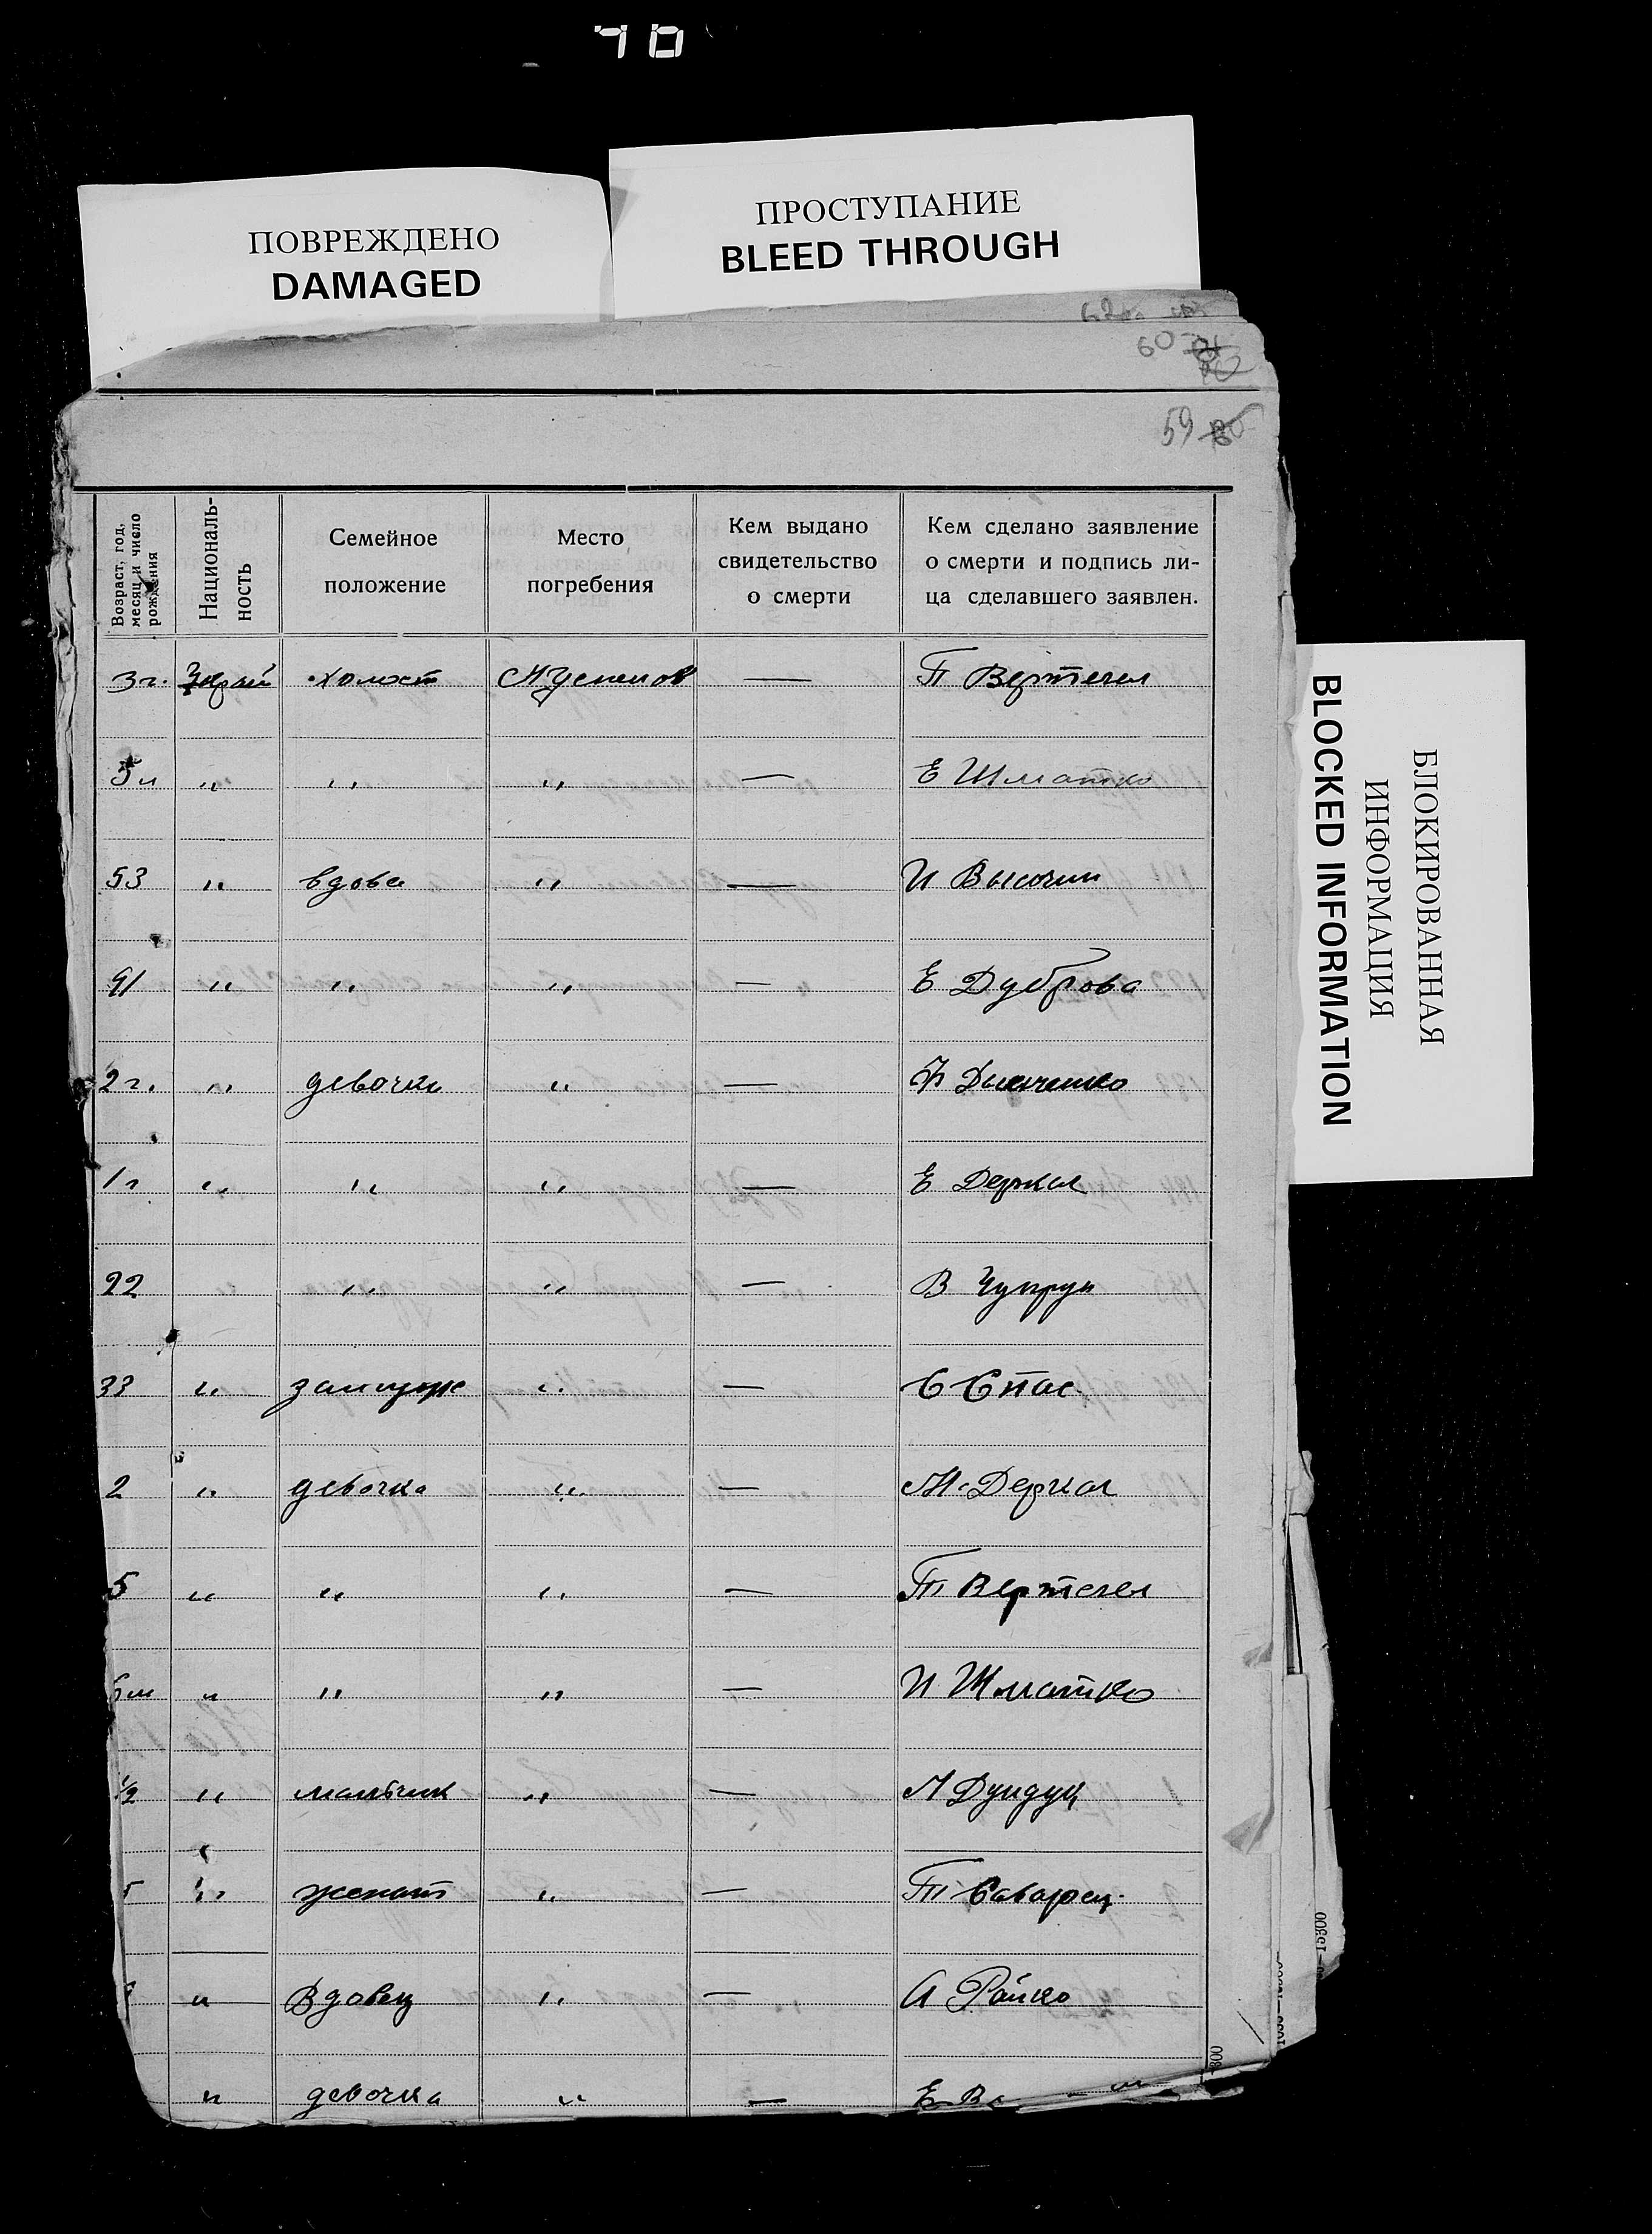 70
ПОВРЕЖДЕНО
DAMAGED
ПРОСТУПАНИЕ
BLEED THROUGH
60
59
БЛОКИРОВАННАЯ
ИНФОРМАЦИЯ
BLOCKED INFORMATION
Возраст, год, месяц и число рождения
Националь-
ность
Семейное
положение
Место
погребения
Кем выдано
свидетельство
о смерти
Кем сделано заявление
о смерти и подпись ли-
ца сделавшего заявлен.
3 г. холост — П Вертегел
5 л " " " — Е Шматко
53 " вдова " — И Височин
91 " " " — Е Дуброва
2 г. " девочка " —
1 г " " " — Е Деркач
22 " " — В Чупрун
33 " замужс " — С Спас
2 " девочка " — М Деркач
5 " " " — Т Вертегел
6 м " " " — И Шматко
1/2 " мальчик " — Л Дундук
" женат " — Т Саварец
" Вдовец " — А Райко
" девочка " — Е